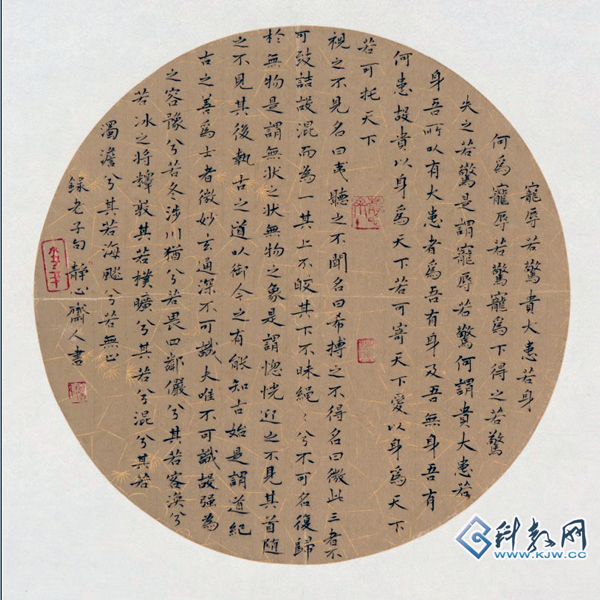 寵辱若驚貴大患若身
何為寵辱若驚寵為下得之若驚
失之若驚是謂寵辱若驚何謂貴大患若
身吾所以有大患者為吾有身及吾無身吾有
何患故貴以身為天下若可寄天下愛以身為天下
若可托天下
視之不見名曰夷聽之不聞名曰希搏之不得名曰微此三者不
可致詰故混而為一其上不皎其下不昧繩〻兮不可名復歸
於無物是謂無狀之狀無物之象是謂惚恍迎之不見其首隨
之不見其後執古之道以御今之有能知古始是謂道紀
古之善為士者微妙玄通深不可識夫唯不可識故強為
之容豫兮若冬涉川猶兮若畏四鄰儼兮其若客渙兮
若冰之將釋敦其若樸曠兮其若兮混兮其若
濁澹兮其若海飈兮若無止
錄老子句靜心齋人書
科教网
www.kjw.cc